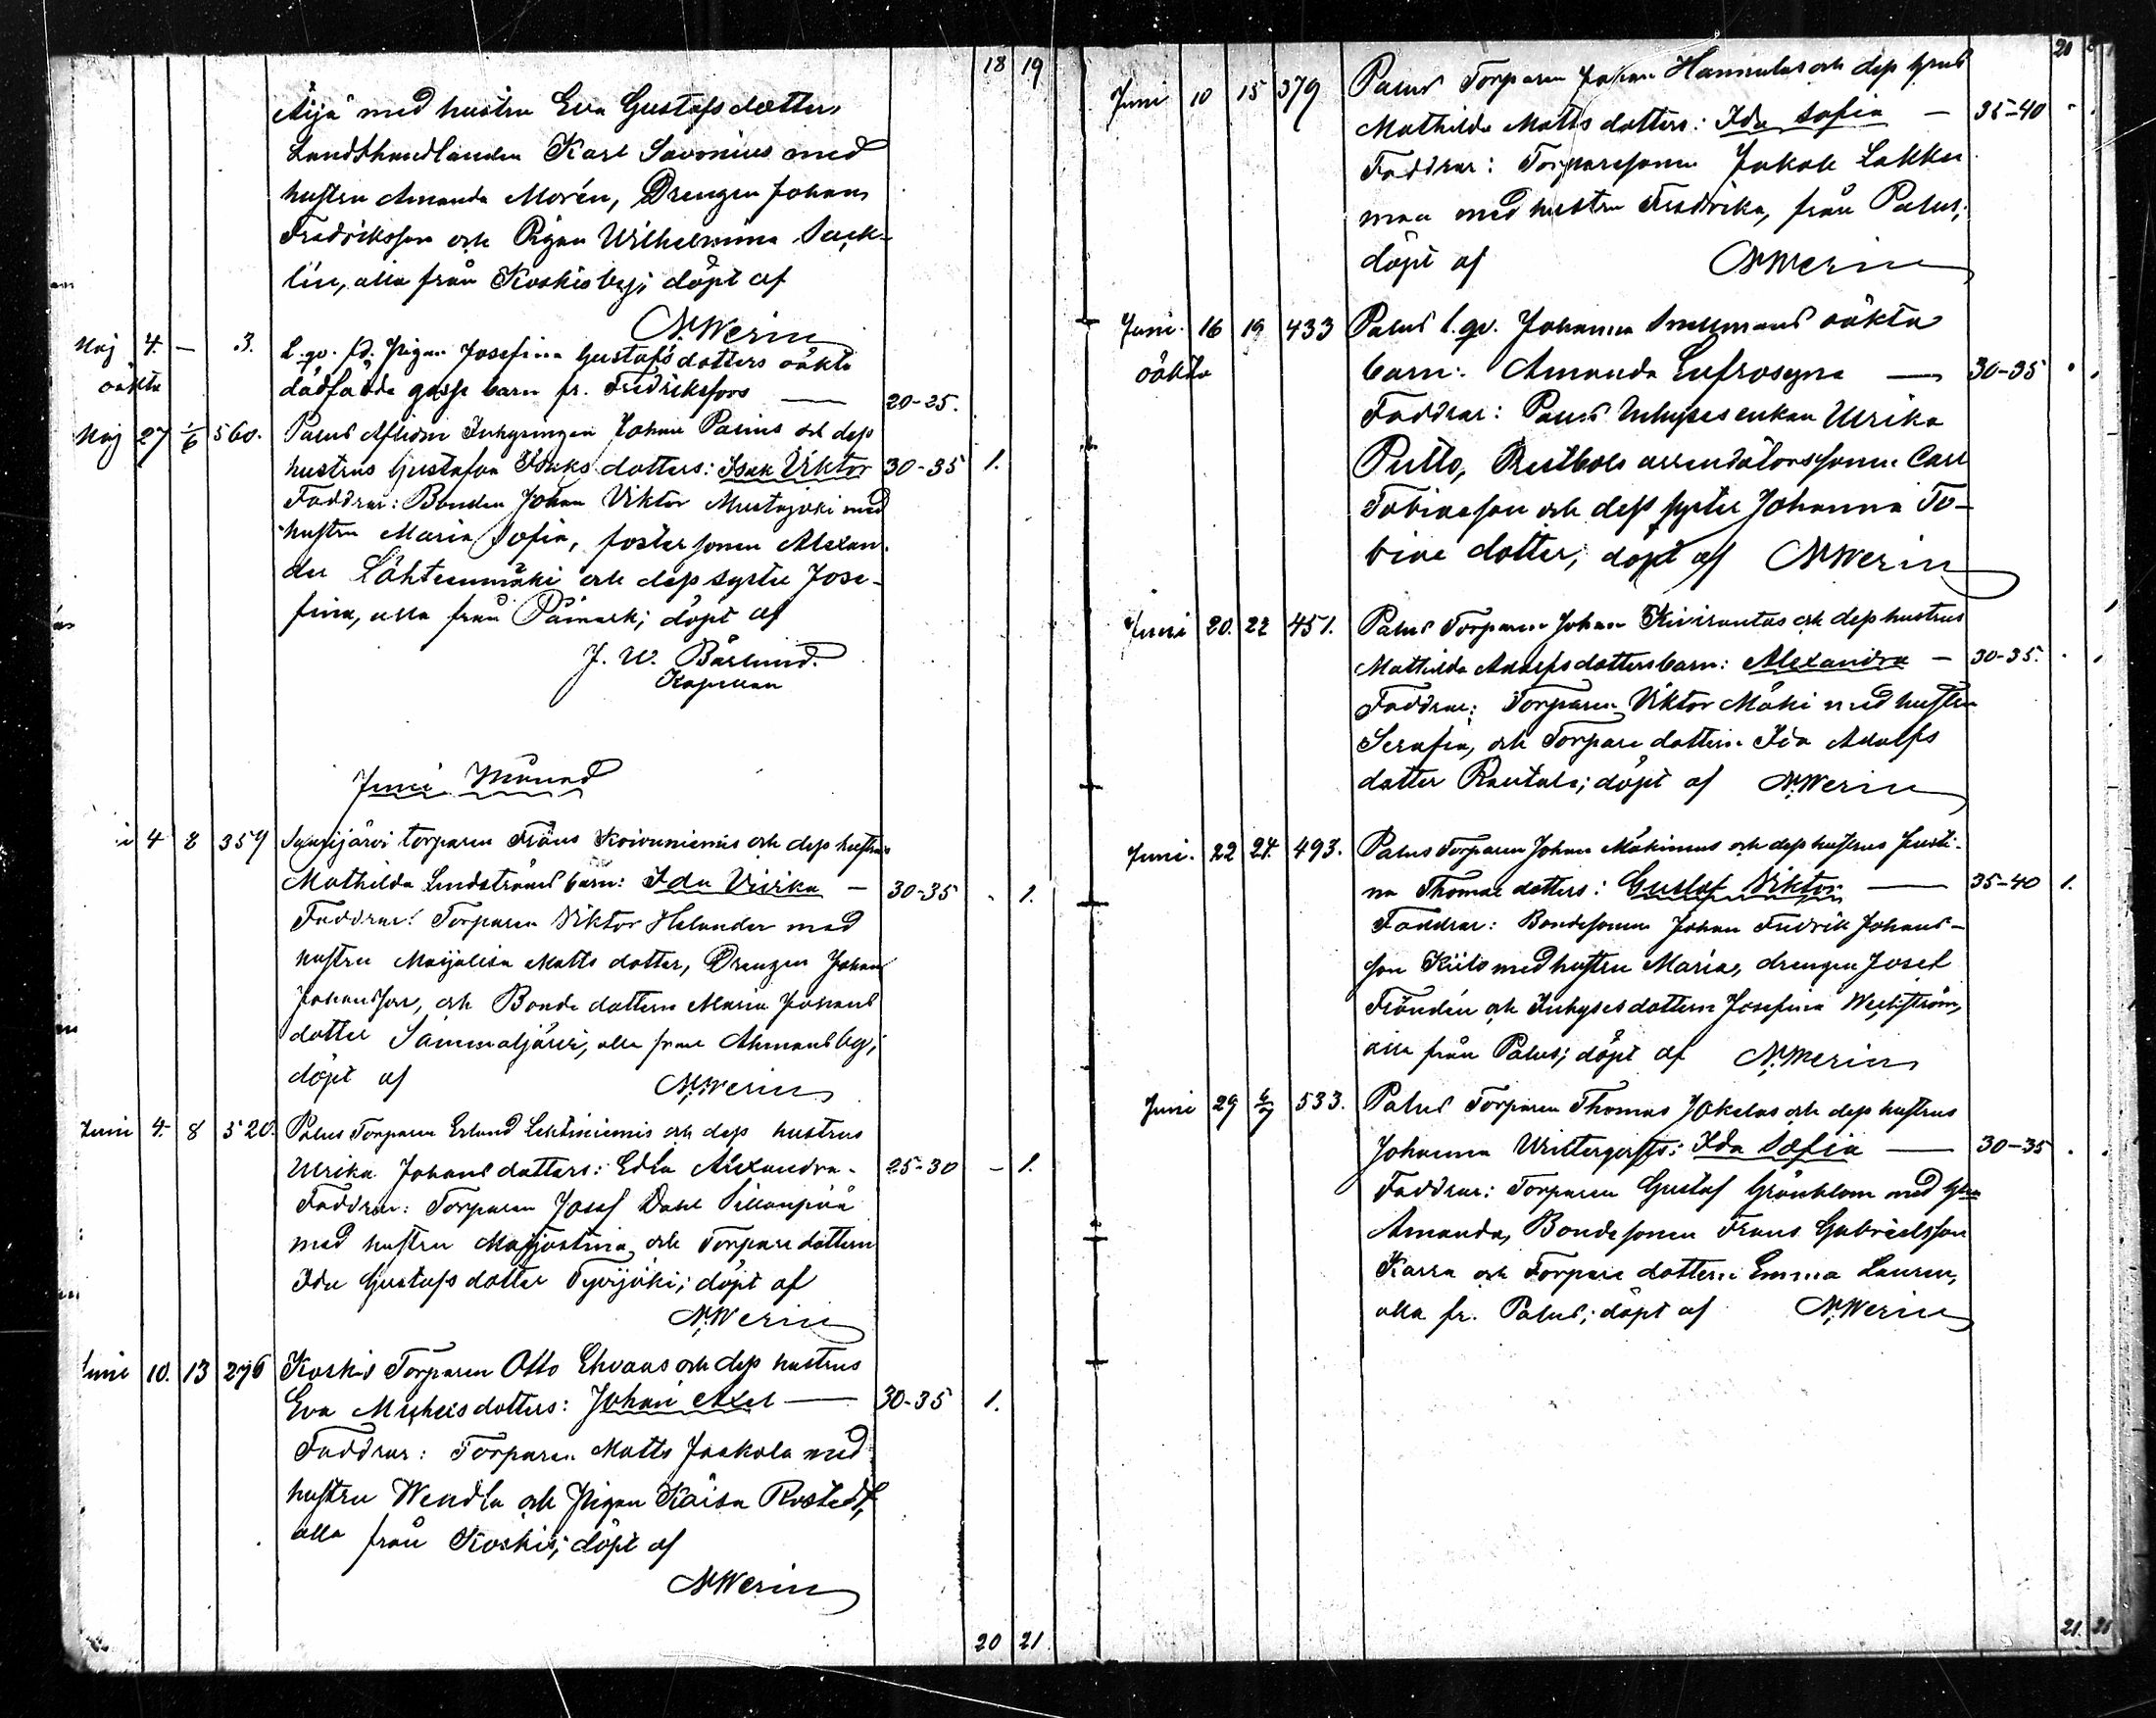 18 19
Äijä med hustru Eva Gustafsdotter,
Landthandlanden Karl Savonius med
hustru Amanda Morén, Drengen Johan
Fredriksson och Pigan Wilhelmina Säck-
lin, alla från Koskis by; döpt af
N. Werin
Maj 4. — 3. L. qv. Pigan Josefina Gustafsdotters oäkta
oäkta dödfödda gosse barn fr. Fredriksfors — 20-25.
Maj 27 1/6 560. Palus Inhysingen Johan Palins och dess
hustrus Gustafva Isaksdotters: Isak Viktor 30-35 1.
Faddrar: Bonden Johan Viktor Mustajoki med
hustru Maria Sofia, fostersonen Alexan-
der Lähteenmäki och dess syster Jose-
fina, alla från Påmark; döpt af
J. W. Barlund.
Kapellan
Juni Månad
i 4 8 359 torparen Frans Koivuniemis och dess hustrus
Mathilda Lindströms barn: Ida Ulrika — 30-35 - 1.
Faddrar: Torparen Viktor Helander med
hustru Maijalisa Matts dotter, Drengen Johan
Johansson, och Bonde dottern Maria Johans
dotter Sammaljärvi, alla från Ahmaus by;
döpt af N. Werin
Juni 4. 8 520. Palus Torparen Erland Lehtiniemis och dess hustrus
Ulrika Johansdotters: Edla Alexandra - 25-30 - 1.
Faddrar: Torparen Josef Dahl Sillanpää
med hustru Majastina, och Torpare dottern
Ida Gustafs dotter Tyvijoki; döpt af
N. Werin
Juni 10. 13 276 Koskis Torparen Otto Ehvaas och dess hustrus
Eva Michelsdotters: Johan Axel — 30-35 1.
Faddrar: Torparen Matts Jaakola med
hustru Wendla och Pigan Kaisa Rostedt,
alla från Koskis; döpt af
N. Werin
20 21
20
Juni 10 15 379 Palus Torparen Johan Hannulas och dess hrus
Mathilda Matts dotters: Ida Sofia — 35-40
Faddrar: Torparesonen Jakob Lakka
maa med hustru Fredrika, från Palus;
döpt af N. Werin
Juni. 16 19 433 Palus l. qv. Johanna Snellmans oäkta
oäkta barn: Amanda Eufrosyna — 30-35
Faddrar: Palus Inhyses enkan Ulrika
Putto, Rustholls arrendatorssonen Carl
Tobiasson och dess syster Johanna To-
bias dotter; döpt af N. Werin
Juni 20. 22 451. Palus Torparen Johan Kivirantas och dess hustrus
Mathilda Adolfsdotters barn: Alexandra — 30-35.
Faddrar: Torparen Viktor Mäki med hustru
Serafia, och Torpare dottern Ida Adolfs
dotter Rautala; döpt af N. Werin
Juni. 22 24. 493. Palus Torparen Johan Mäkinens och dess hustrus Justi-
na Thomas dotters: Gustaf Viktor — 35-40 1.
Faddrar: Bondesonen Johan Fredrik Johans-
son Kiilo med hustru Maria, drengen Josef
Frändén och Inhysesdottern Josefina Werhström,
alla från Palus; döpt af N. Werin
Juni 29 6/7 533. Palus Torparen Thomas Jokelas och dess hustrus
Johanna Wintergersts: Ida Sofia — 30-35
Faddrar: Torparen Gustaf Grönblom med hru
Amanda, Bondesonen Frans Gabrielsson
Karra och Torpare dottern Emma Lauren,
alla fr. Palus; döpt af N. Werin
21. 21